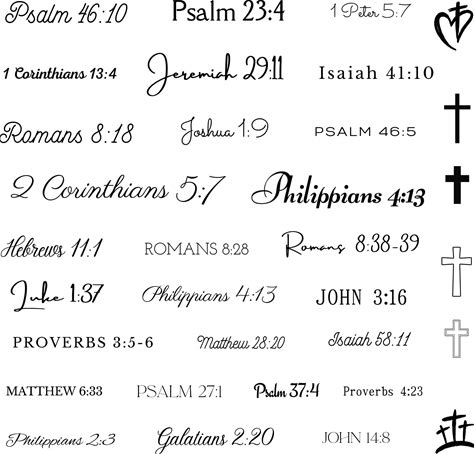 Psalm 46:10 Psalm 23:4 1 Peter 5:7
1 Corinthians 13:4 Jeremiah 29:11 Isaiah 41:10
Romans 8:18 Joshua 1:9 PSALM 46:5
2 Corinthians 5:7 Philippians 4:13
Hebrews 11:1 ROMANS 8:28 Romans 8:38-39
Luke 1:37 Philippians 4:13 JOHN 3:16
PROVERBS 3:5-6 Matthew 28:20 Isaiah 58:11
MATTHEW 6:33 PSALM 27:1 Psalm 37:4 Proverbs 4:23
Philippians 2:3 Galatians 2:20 JOHN 14:8